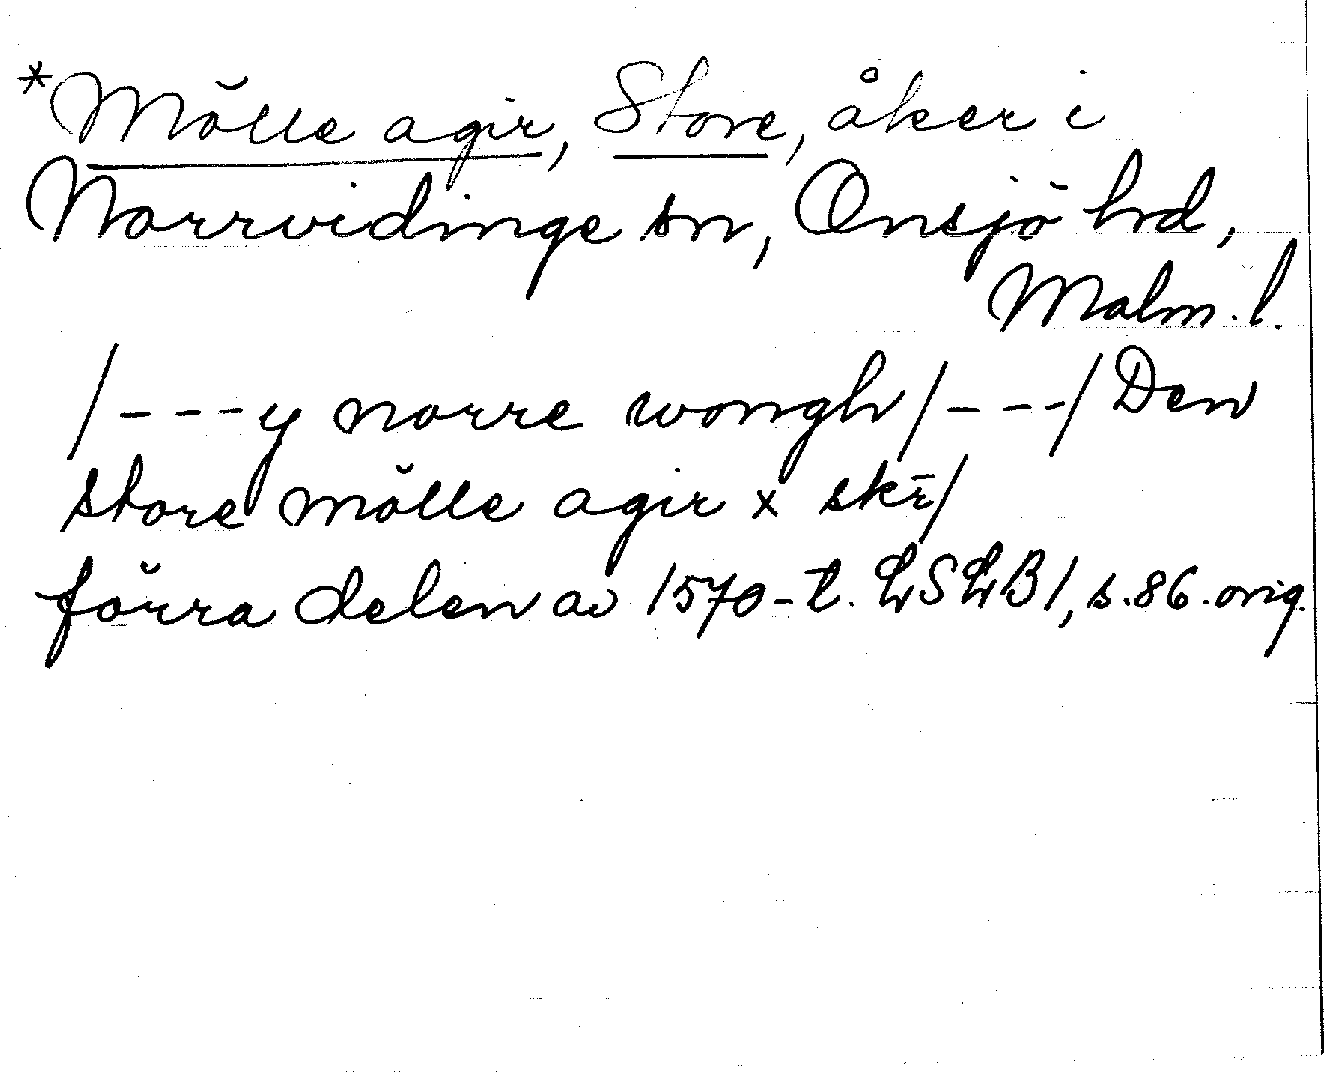 *Mölle agir, Store, åker i
Norrvidinge sn, Onsjö hrd,
Malm. l.
/---y norre wongh/---/ Den
store mölle agir x skr̄/
förra delen av 1570-t. LSLB1, s. 86. orig.